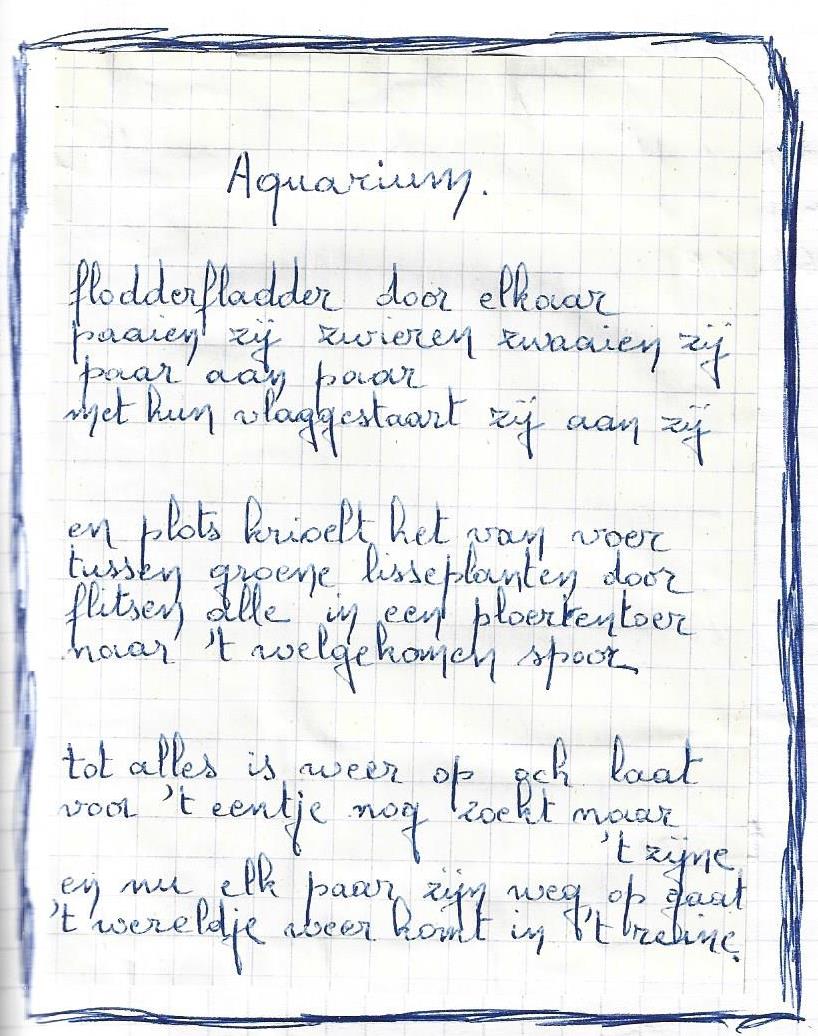 Aquarium.
flodderfladder door elkaar
paaien zij zwieren zwaaien zij
paar aan paar
met hun vlaggestaart zij aan zij
en plots krioelt het van voer
tussen groene lisseplanten door
flitsen alle in een ploertentoer
naar 't welgekomen spoor
tot alles is weer op ach laat
voor 't eentje nog zoekt naar
't zijne
en nu elk paar zijn weg op gaat
't wereldje weer komt in 't reine.